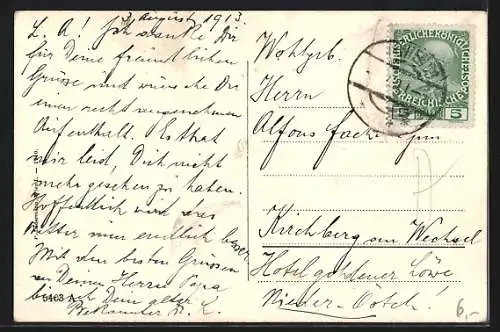 3. August 1913.
L. A! Ich danke Dir
für Deine freundlichen
Grüsse und wünsche Dir
einen recht angenehmen
Aufenthalt. Es that
mir leid, Dich nicht
mehr gesehen zu haben.
Hoffentlich wird das
Wetter nun endlich besser
Mit den besten Grüssen
an Deinen Herrn Papa
bin ich Dein alter
Bekannter R. L.
5408 A
Wohlgb.
Herrn
Alfons jun
Kirchberg am Wechsel
Hotel goldener Löwe
Nieder-Östch!
WIEN
5
6,-